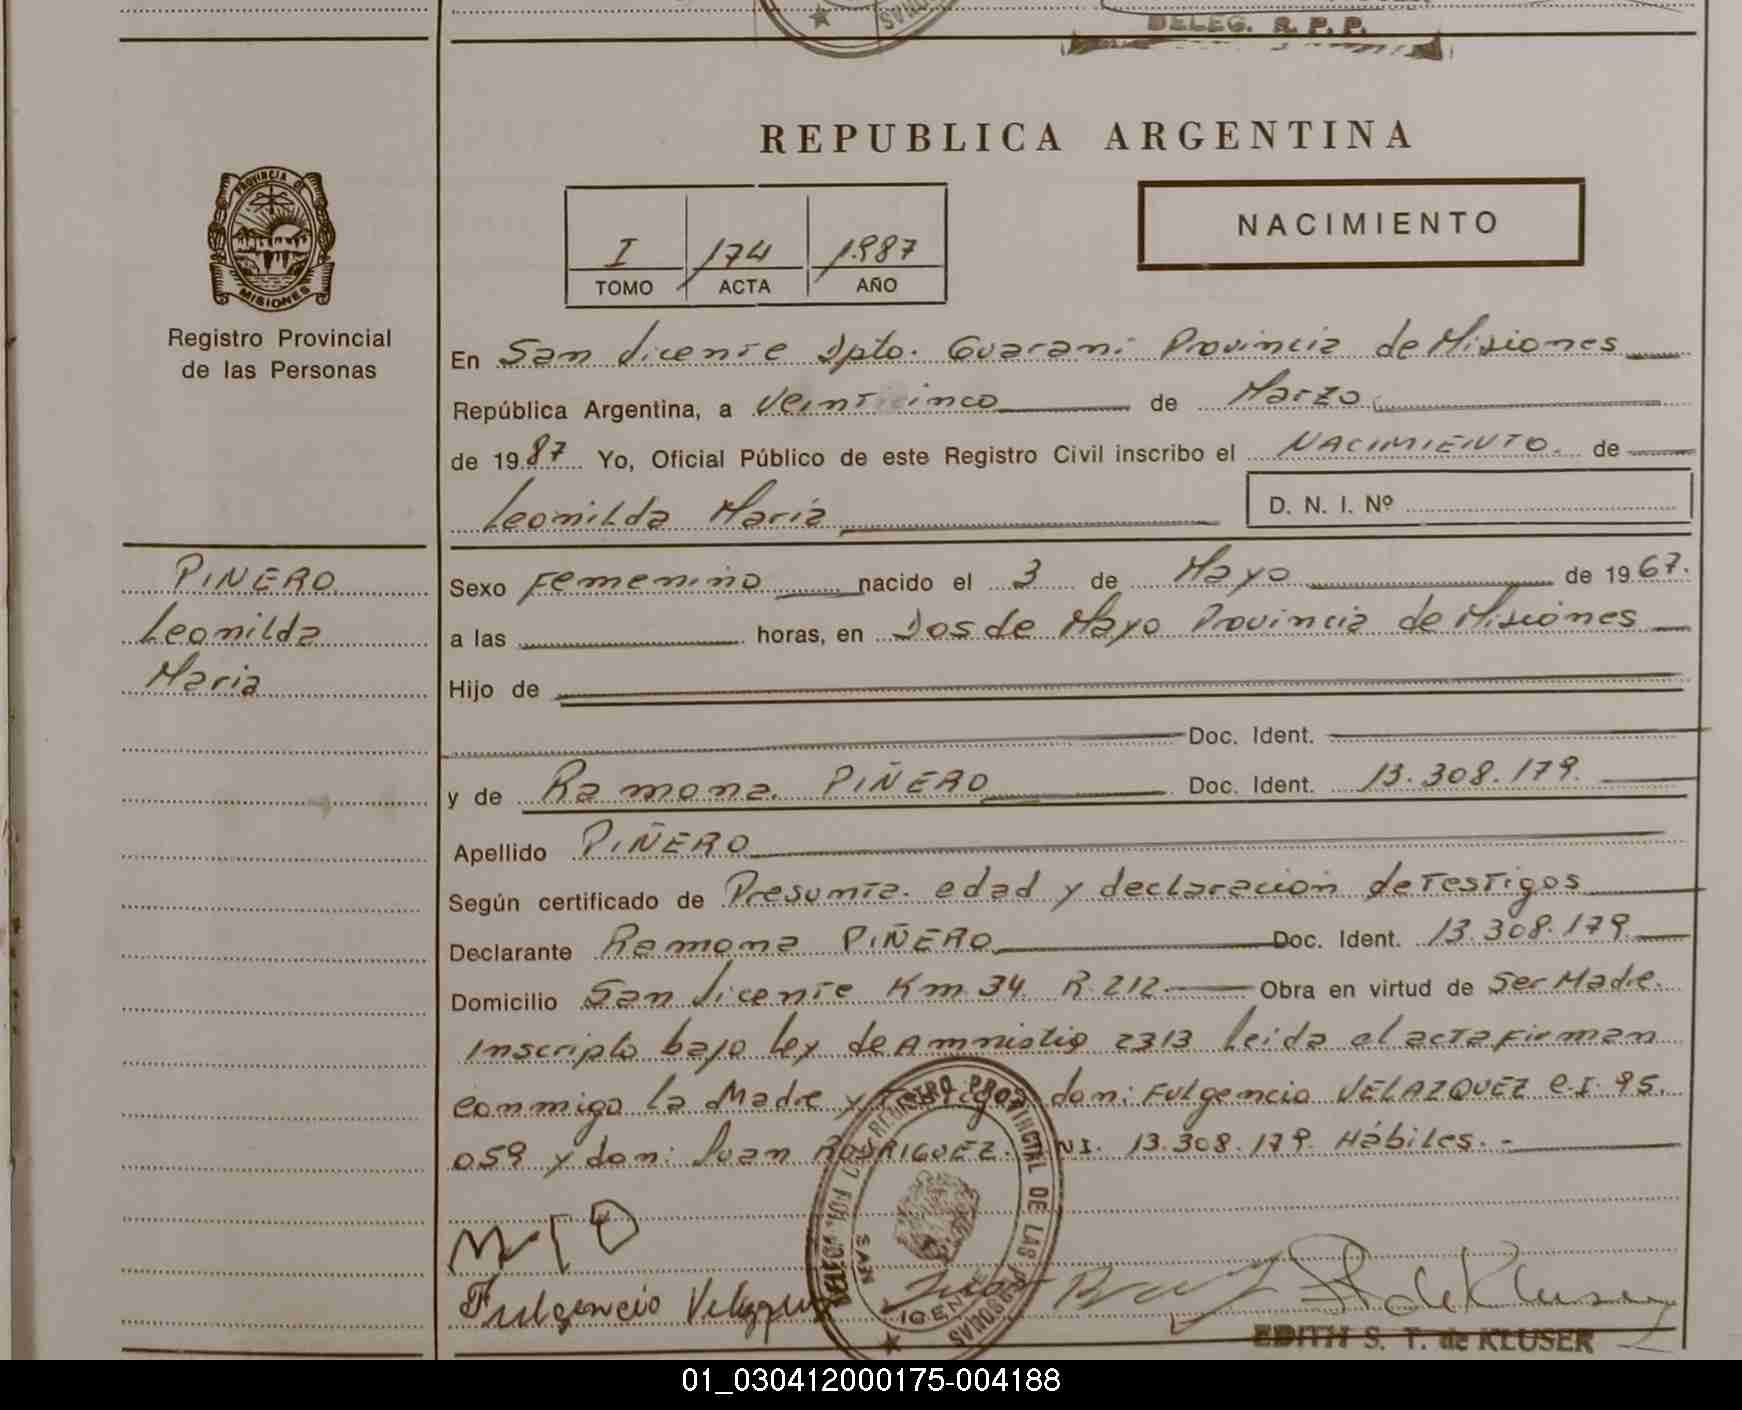 DELEG. R. P. P.
REPUBLICA ARGENTINA
PROVINCIA DE
MISIONES
Registro Provincial
de las Personas
I 174 1987
TOMO ACTA AÑO
NACIMIENTO
En San Vicente Dpto. Guarani Provincia de Misiones
República Argentina, a Veinticinco de Marzo
de 1987 Yo, Oficial Público de este Registro Civil inscribo el NACIMIENTO. de
Leonilda Maria
D. N. I. Nº
PINERO
Leonilda
Maria
Sexo Femenino nacido el 3 de Mayo de 1967.
a las horas, en Dos de Mayo Provincia de Misiones
Hijo de
Doc. Ident.
y de Ramona. PIÑERO Doc. Ident. 13.308.179.
Apellido PIÑERO
Según certificado de Presunta. edad y declaracion de Testigos
Declarante Ramona PIÑERO Doc. Ident. 13.308.179.
Domicilio San Vicente Km 34 R.212. Obra en virtud de Ser Madre.
Inscripto bajo Ley de Amnistia 2313 Leida el acta Firman
conmigo la Madre y Testigos don: Fulgencio VELAZQUEZ C.I. 95.
059 y don: Juan RODRIGUEZ. NI. 13.308.179. Hábiles.-
REGISTRO PROVINCIAL DE LAS PERSONAS
SAN VICENTE
Fulgencio Velazquez
EDITH S. T. de KLUSER
01_030412000175-004188